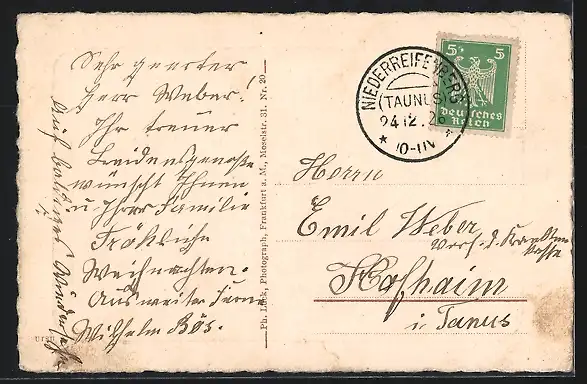 Sehr geerter
Herr Weber!
Ihr treuer
Leidensgenosse
wünscht Ihnen
u Ihrer Familie
Fröhliche
Weihnachten.
Aus weiter Ferne
Wilhelm Bös.
Auf baldiges Wiedersehn
Ph. Photograph, Frankfurt a. M., Moselstr. 31. Nr. 20
NIEDERREIFENBERG
(TAUNUS)
24.12.26
* 10-11V *
5 5
deutsches
Reich
Herrn
Emil Weber
Vors. d. Kranken
kasse
Hofhaim
i. Tanus